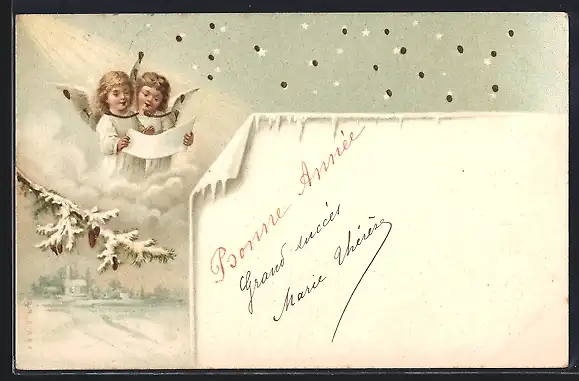 Bonne Année
Grand succès
Marie Thérèse